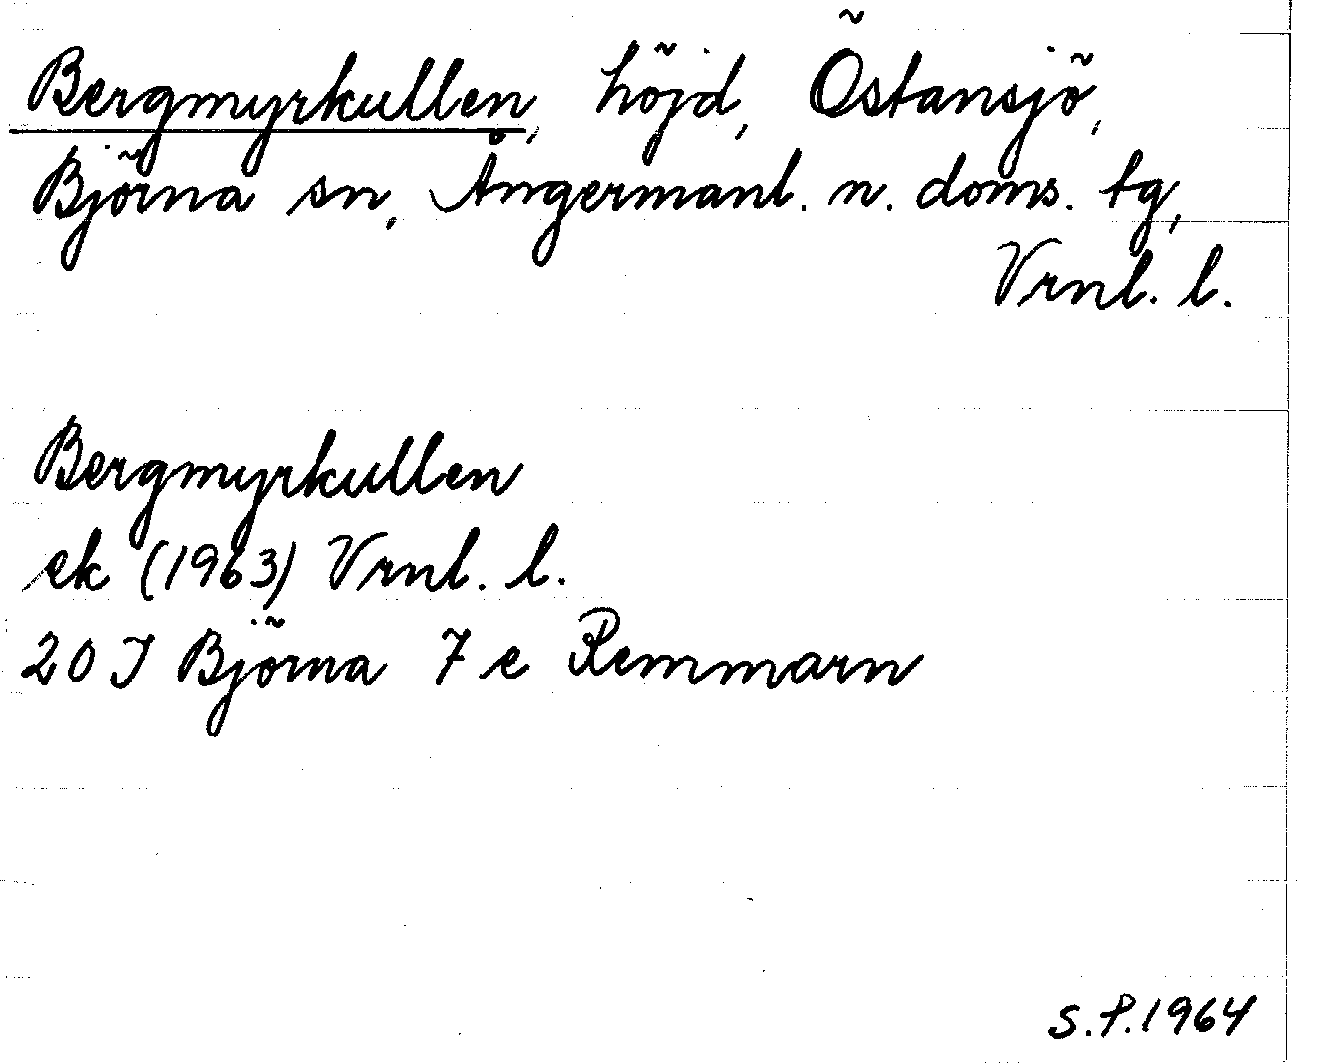 Bergmyrkullen, höjd, Östansjö,
Björna sn, Ångermanl. n. doms. tg,
Vrnl. l.
Bergmyrkullen
ek (1963) Vrnl. l.
20 J Björna 7 e Remmarn
S.P. 1964